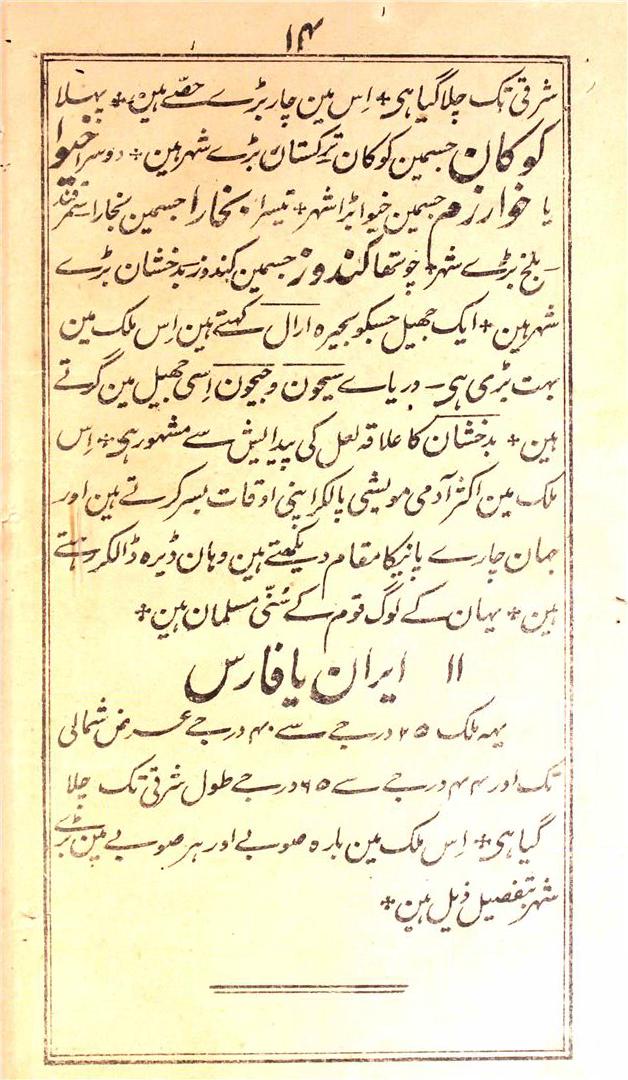 ۱۴
شرقی تک چلا گیا ہی + اِس مین چار بڑے حصّے ہین + پہلا
کوکان جسمین کوکان ترکستان بڑے شہر ہین + دوسرا خیوا
یا خوارزم جسمین خیوا بڑا شہر + تیسرا بخارا جسمین بخارا سمرقند
- بلخ بڑے شہر + چوتھا کندوز جسمین کندوز - بدخشان بڑے
شہر ہین + ایک جھیل جسکو بحیرہ ارال کہتے ہین اِس ملک مین
بہت بڑی ہی - دریاے سیحون و جیحون اِسی جھیل مین گرتے
ہین + بدخشان کا علاقہ لعل کی پیدایش سے مشہور ہی + اِس
ملک مین اکثر آدمی مویشی پالکر اپنی اوقات بسر کرتے ہین اور
جہان چارے پانیکا مقام دیکھتے ہین وہان ڈیرہ ڈالکر رہتے
ہین + یہان کے لوگ قوم کے سُنّی مسلمان ہین +
۱۱ ایران یا فارس
یہہ ملک ۲۵ درجے سے ۴۰ درجے عرض شمالی
تک اور ۴۴ درجے سے ۶۵ درجے طول شرقی تک چلا
گیا ہی + اِس ملک مین بارہ صوبے اور ہر صوبے مین بڑے
شہر بتفصیل ذیل ہین +